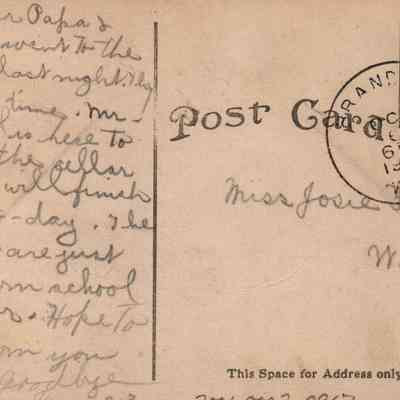 Papa &
went to the
last night. They
time. Mr-
is here to
the cellar
will finish
-day. The
are just
school
Hope to
you
Goodbye
Post Card
RAND
Miss Josie
W
This Space for Address only